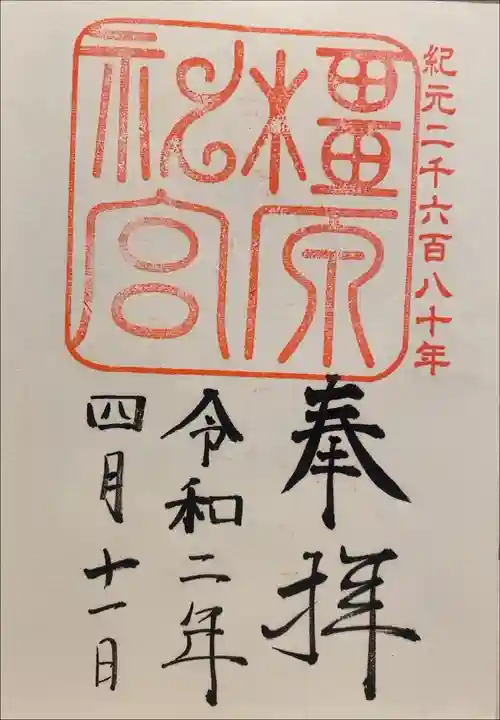 紀元二千六百八十年
橿原
神宮
奉拝
令和二年
四月十一日